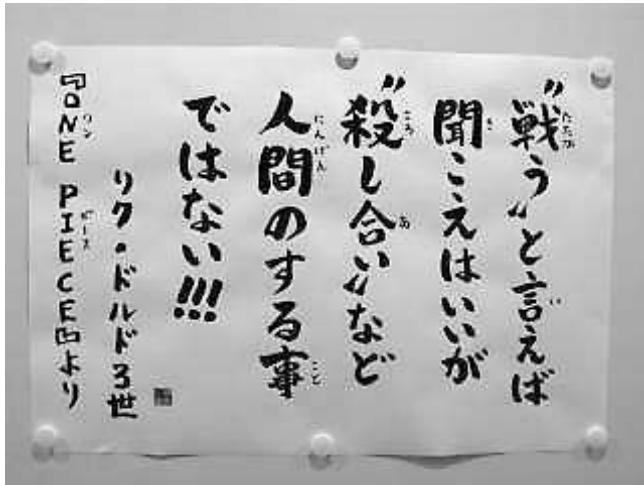 〝戦う〟と言えば
聞こえはいいが
〝殺し合い〟など
人間のする事
ではない!!!
リク・ドルド3世
『ONE PIECE』より